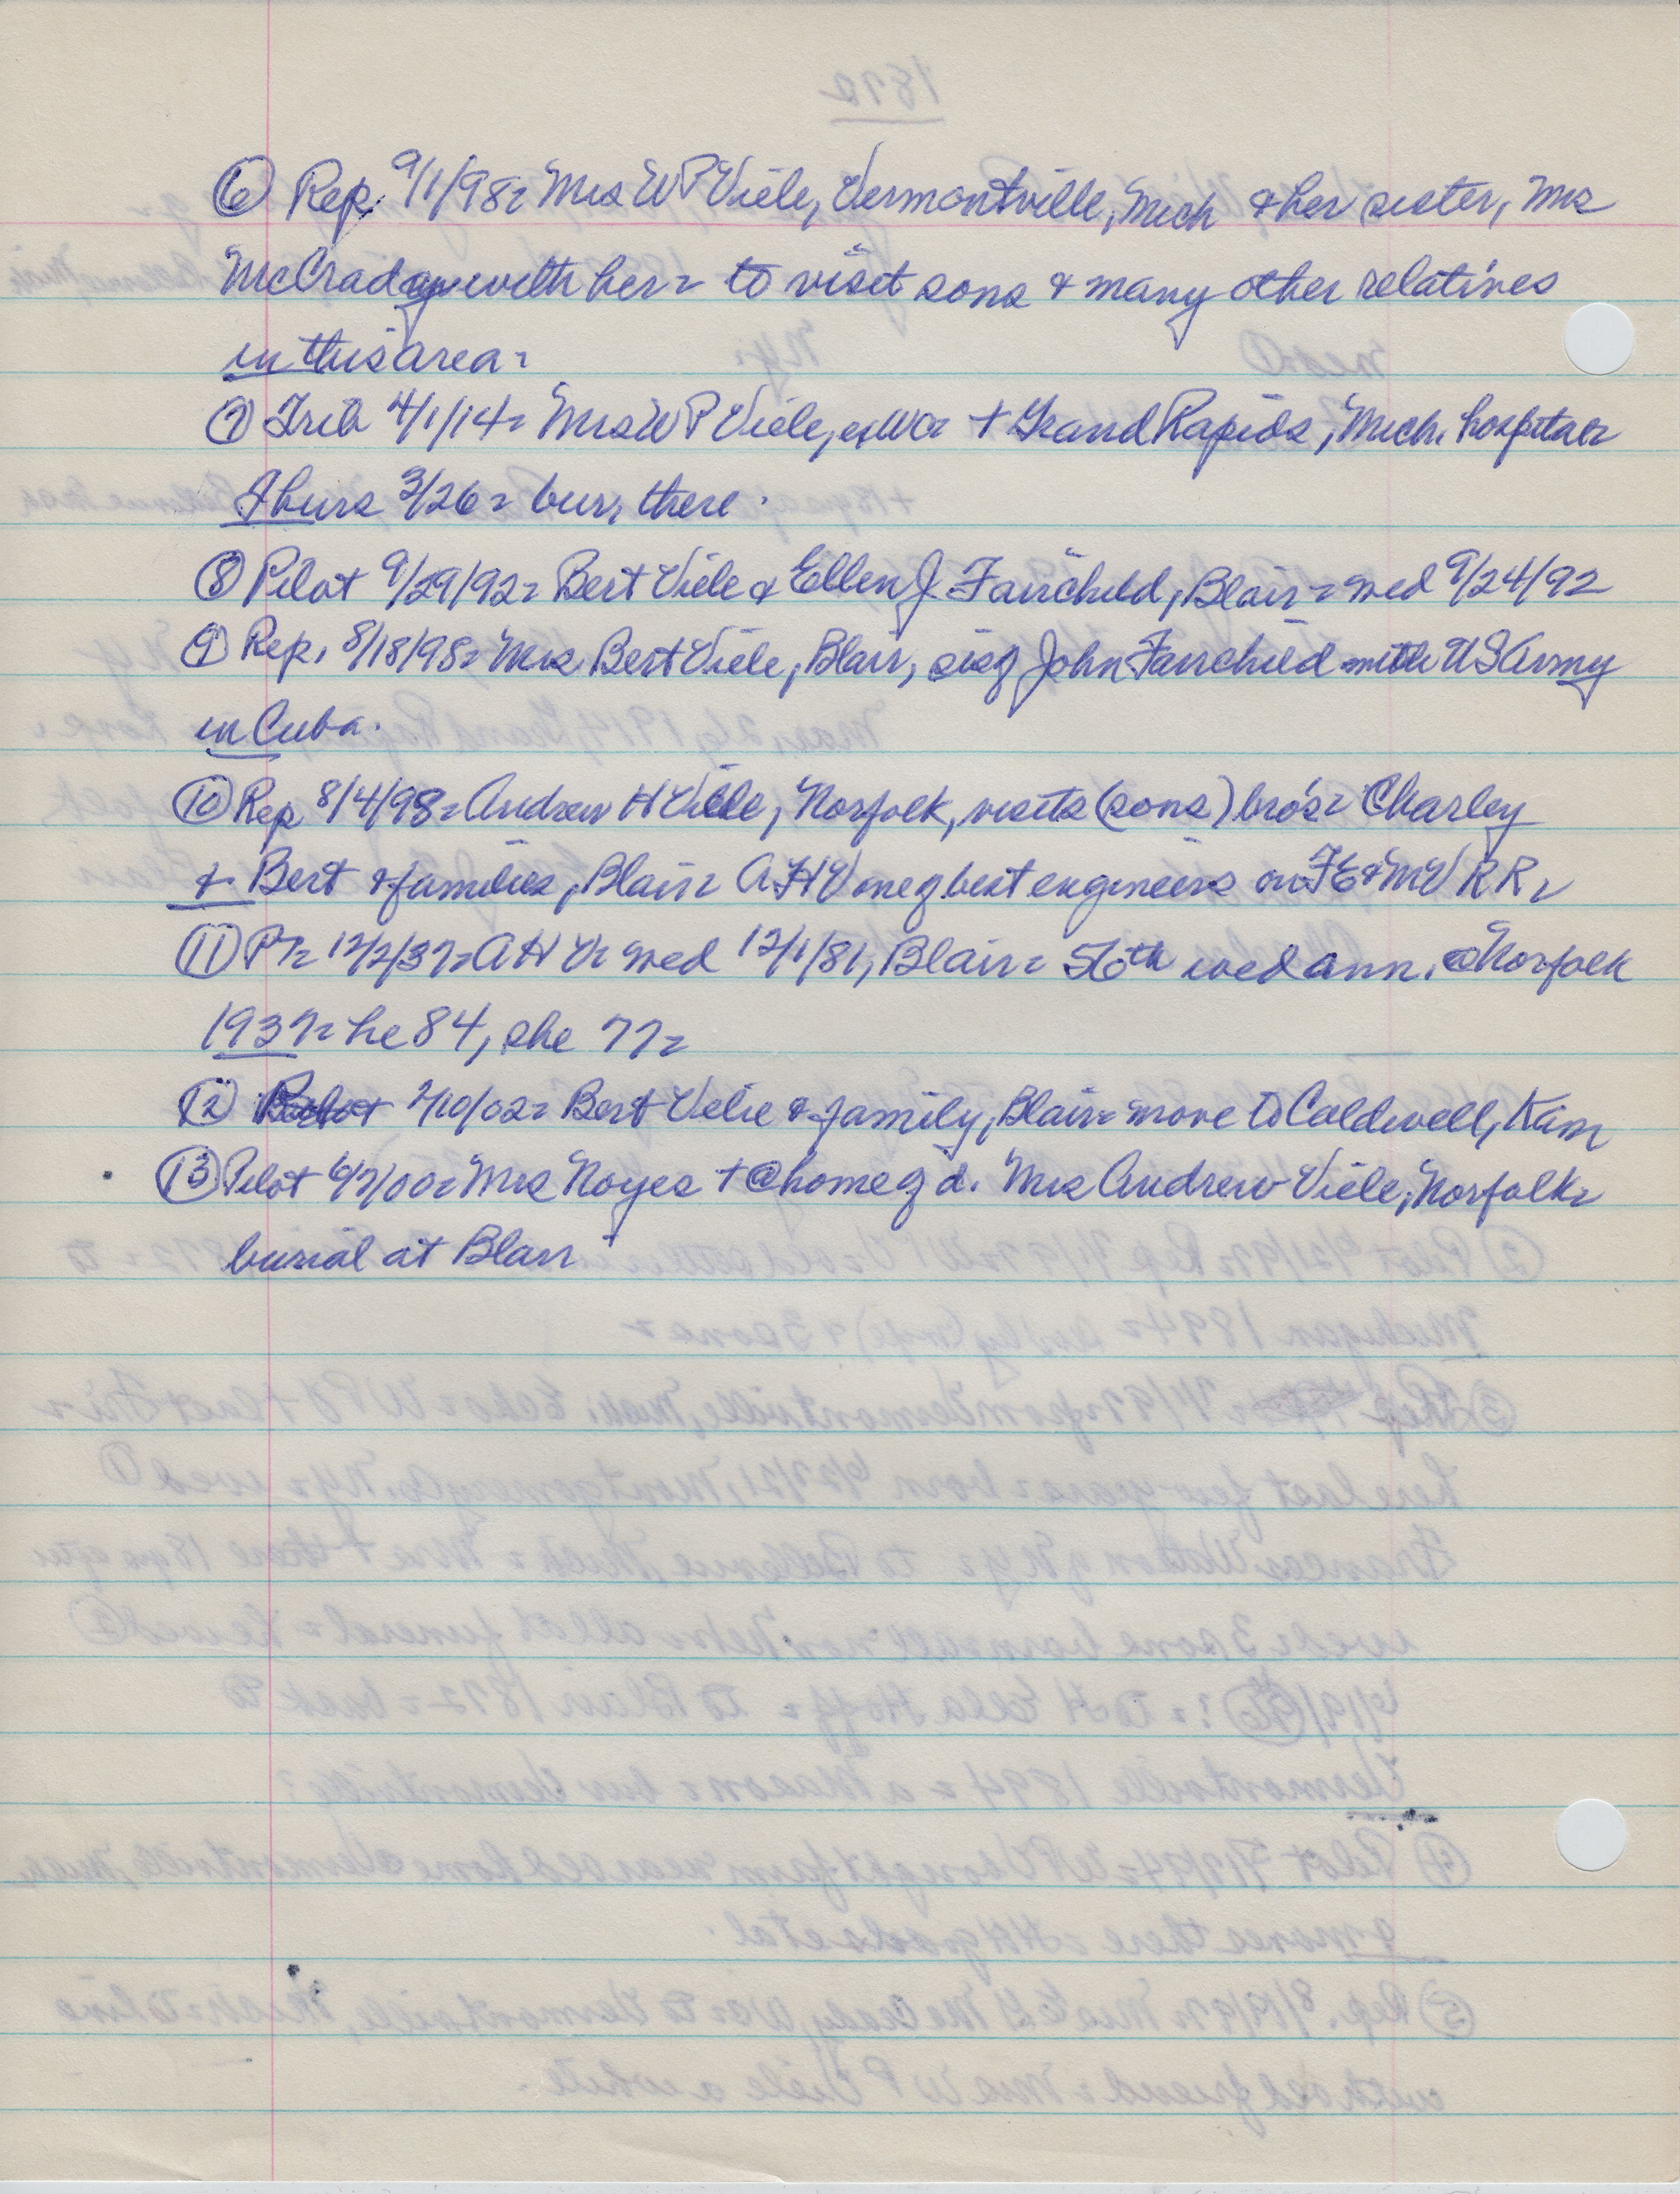 ⑥ Rep. 9/1/98= Mrs W P Viele, Vermontville, Mich & her sister, Mrs
McCrady with her = to visit sons & many other relatives
in this area =
⑦ Trib 4/1/14= Mrs W P Viele, ex WCo + Grand Rapids, Mich. hospital =
Thurs 3/26 = bur, there.
⑧ Pilot 9/29/92= Bert Viele & Ellen J Fairchild, Blair = wed 9/24/92
⑨ Rep, 8/18/98= Mrs Bert Viele, Blair, sis of John Fairchild with US Army
in Cuba.
⑩ Rep 8/4/98= Andrew H Viele, Norfolk, visits (sons) bro's = Charley
& Bert & families, Blair = A H V one of best engineers on FE&MV RR =
⑪ PT= 12/2/37= A H V = wed 12/1/81, Blair = 56th wed ann. @ Norfolk
1937 = he 84, she 77 =
⑫ 2/10/02= Bert Viele & family, Blair = move to Caldwell, Kan
⑬ Pilot 6/7/00= Mrs Noyes + @ home of d. Mrs Andrew Viele, Norfolk =
burial at Blair